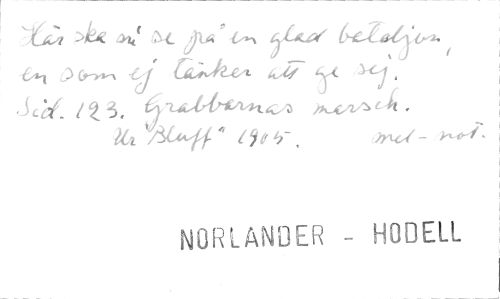 Här ska ni se på en glad bataljon,
en som ej tänker att ge sej.
Sid. 123. Grabbarnas marsch.
Ur "Bluff" 1905. mel-not.
NORLANDER - HODELL